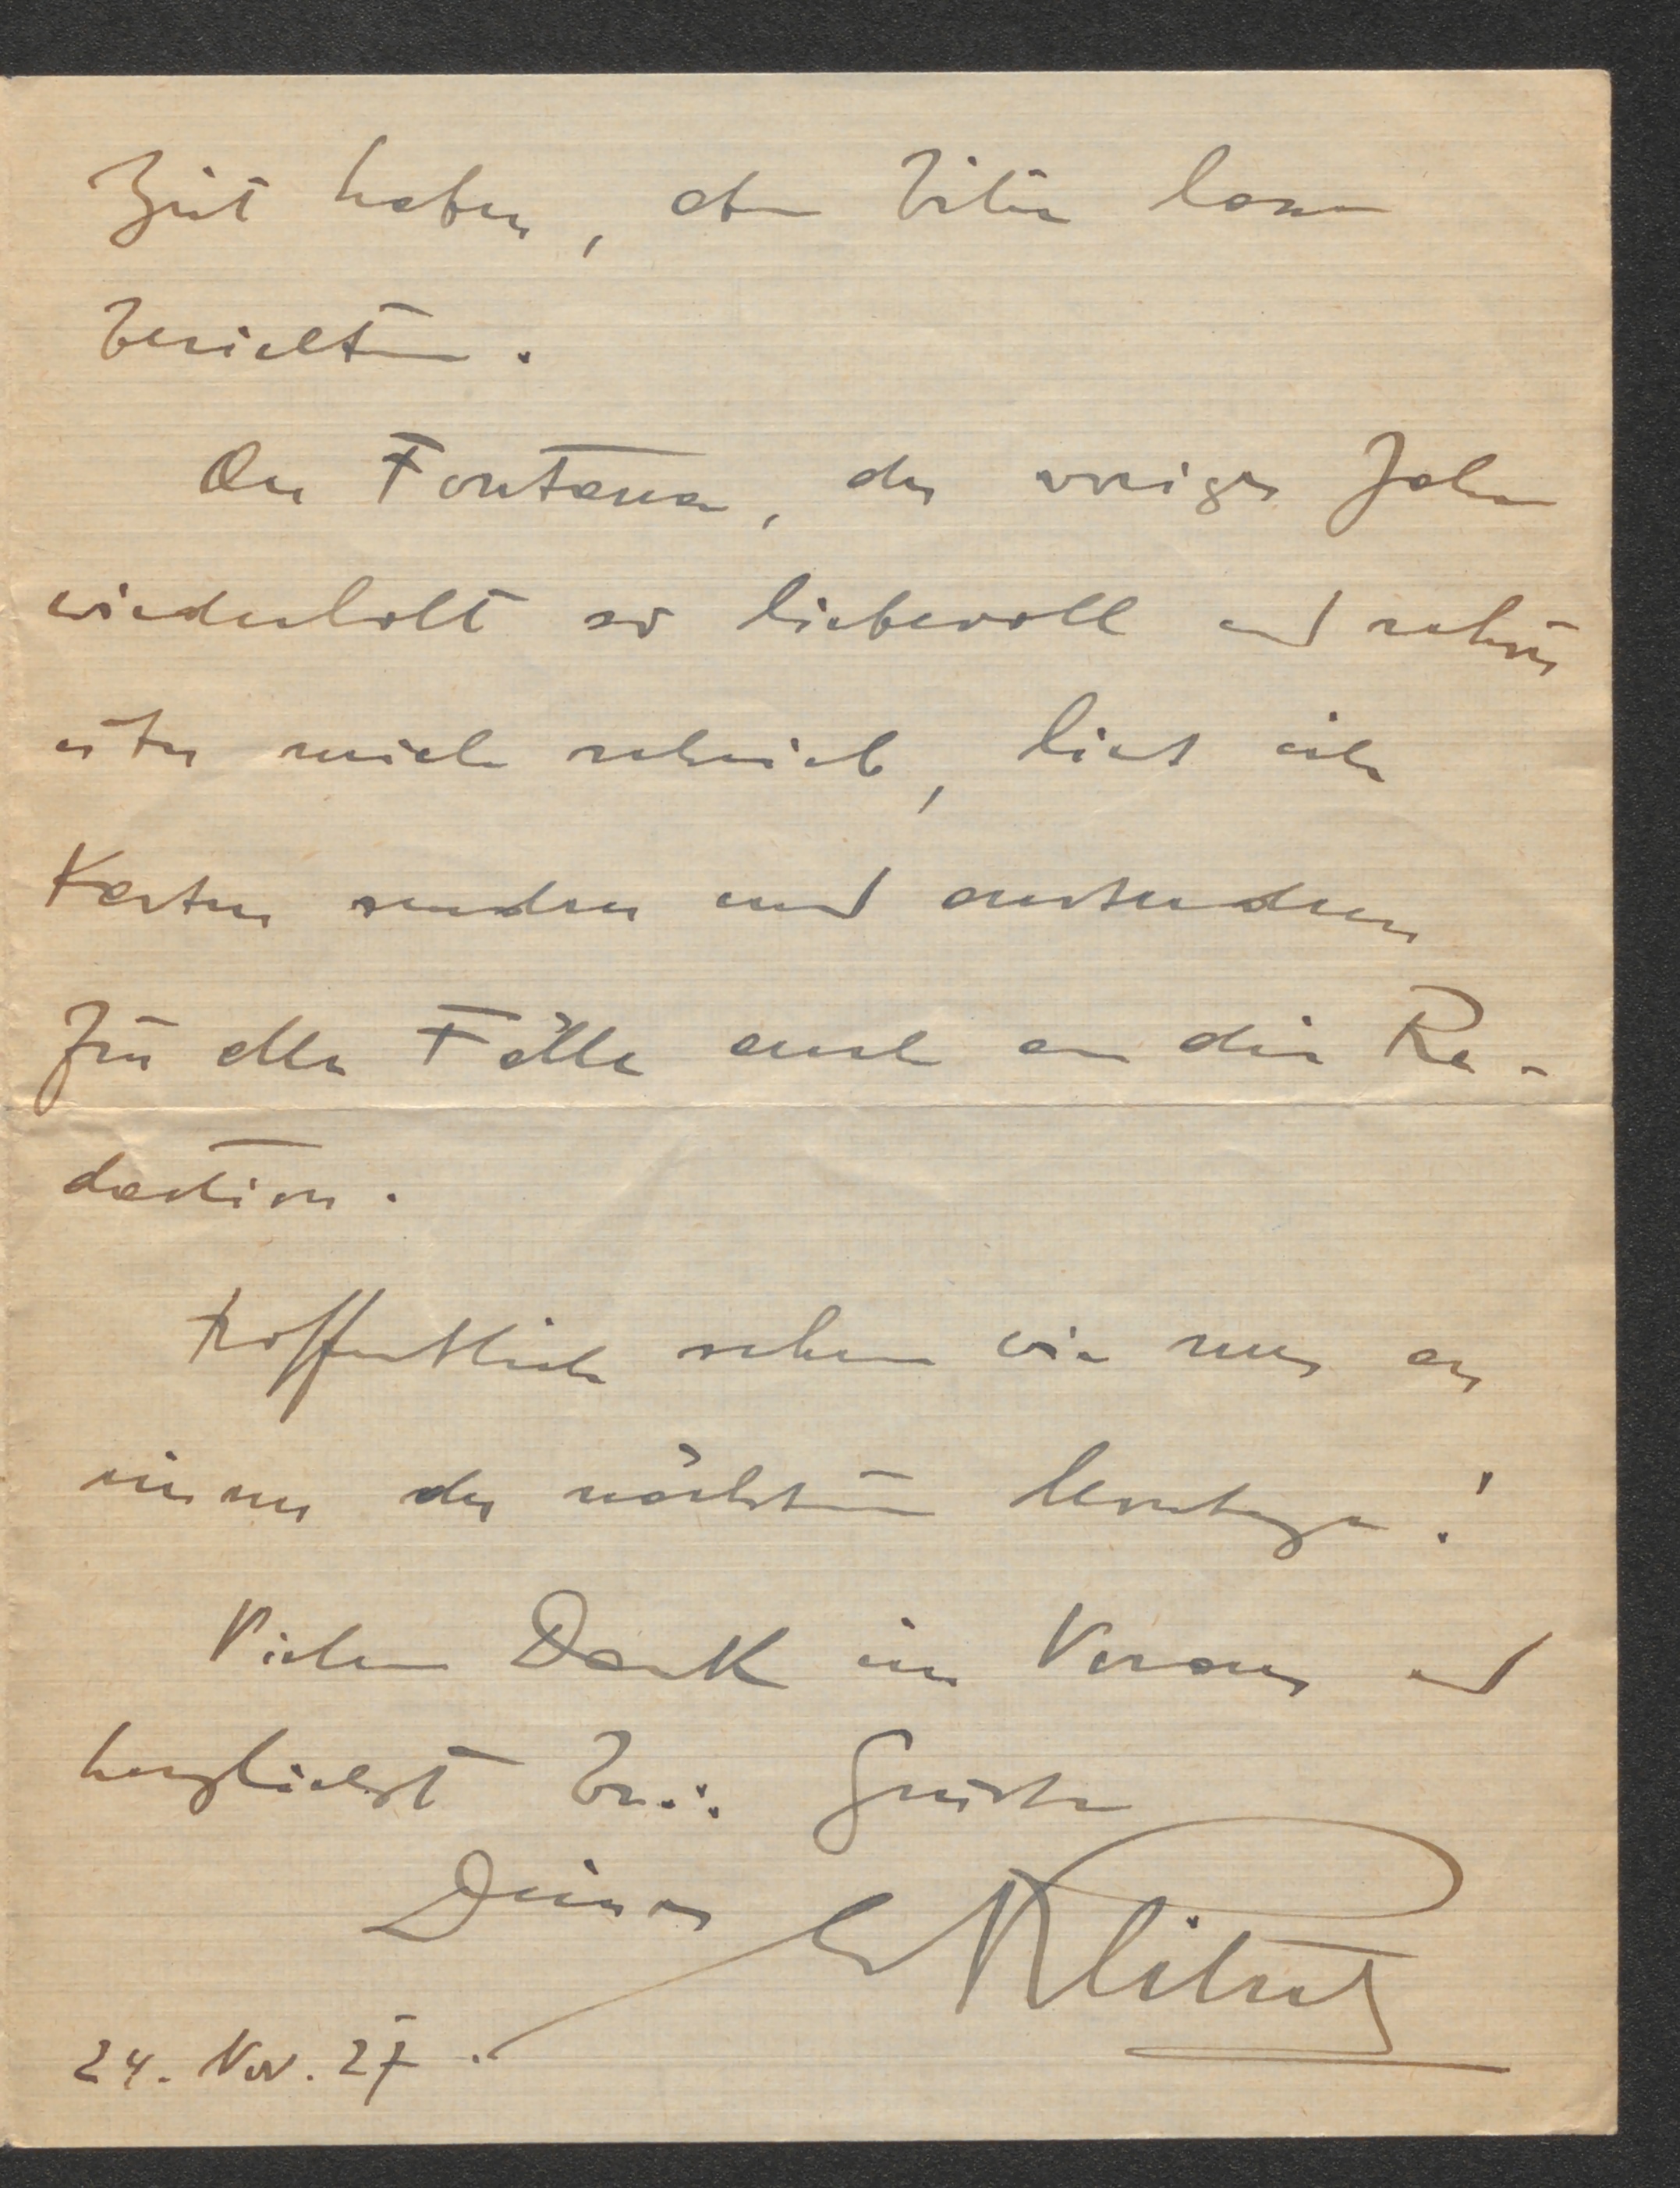 Zeit haben, aber bitte
berichten.
An Fontana, der voriges Jahr
wiederholt so liebevoll und schön
über mich schrieb, liess ich
Karten senden und ausserdem
für alle Fälle auch an die Re-
daction.
Hoffentlich sehen wir uns an
einem der nächsten
Vielen Dank im Voraus und
herzlichst Grüsse
Deines
24. Nov. 27.